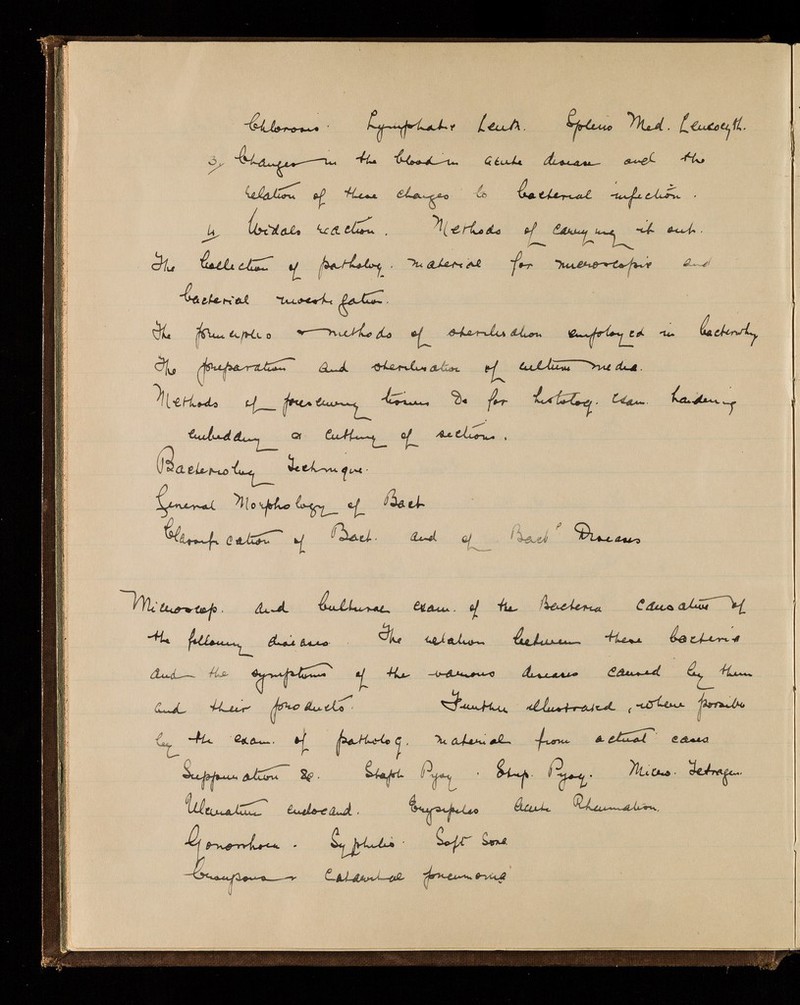 Chlorosis. Lymphatic Leuk. Spleno Med. Leucocyth.
3, Changes in the blood in acute disease and the
relation of these changes to bacterial infection.
4, Widals reaction. Methods of carrying it out.
The collection of patholog. material for microscopic and
bacterial investigation.
The principles methods of sterilisation employed in bacteriology
The preparation and sterilisation of culture media.
Methods of preserving tissues &c for histolog. exam. hardening
embedding or cutting of sections.
Bacteriology Technique.
General Morphology of Bact
Classification of Bact. and of Bactl Diseases
Microscop. and Cultural exam. of the Bacteria Causative of
the following diseases The relation between these bacteria
and the symptoms of the various diseases caused by them
and their products. Further illustrated, where possible
by the exam. of patholog. material from actual cases
Suppuration &c. Staph Pyog. Strep. Pyog. Micro. Tetragen.
Ulcerative endocard. Erysipelas Acute Rheumatism.
Gonorrhoea. Syphilis. Soft Sore
Croupous Catarrhal pneumonia